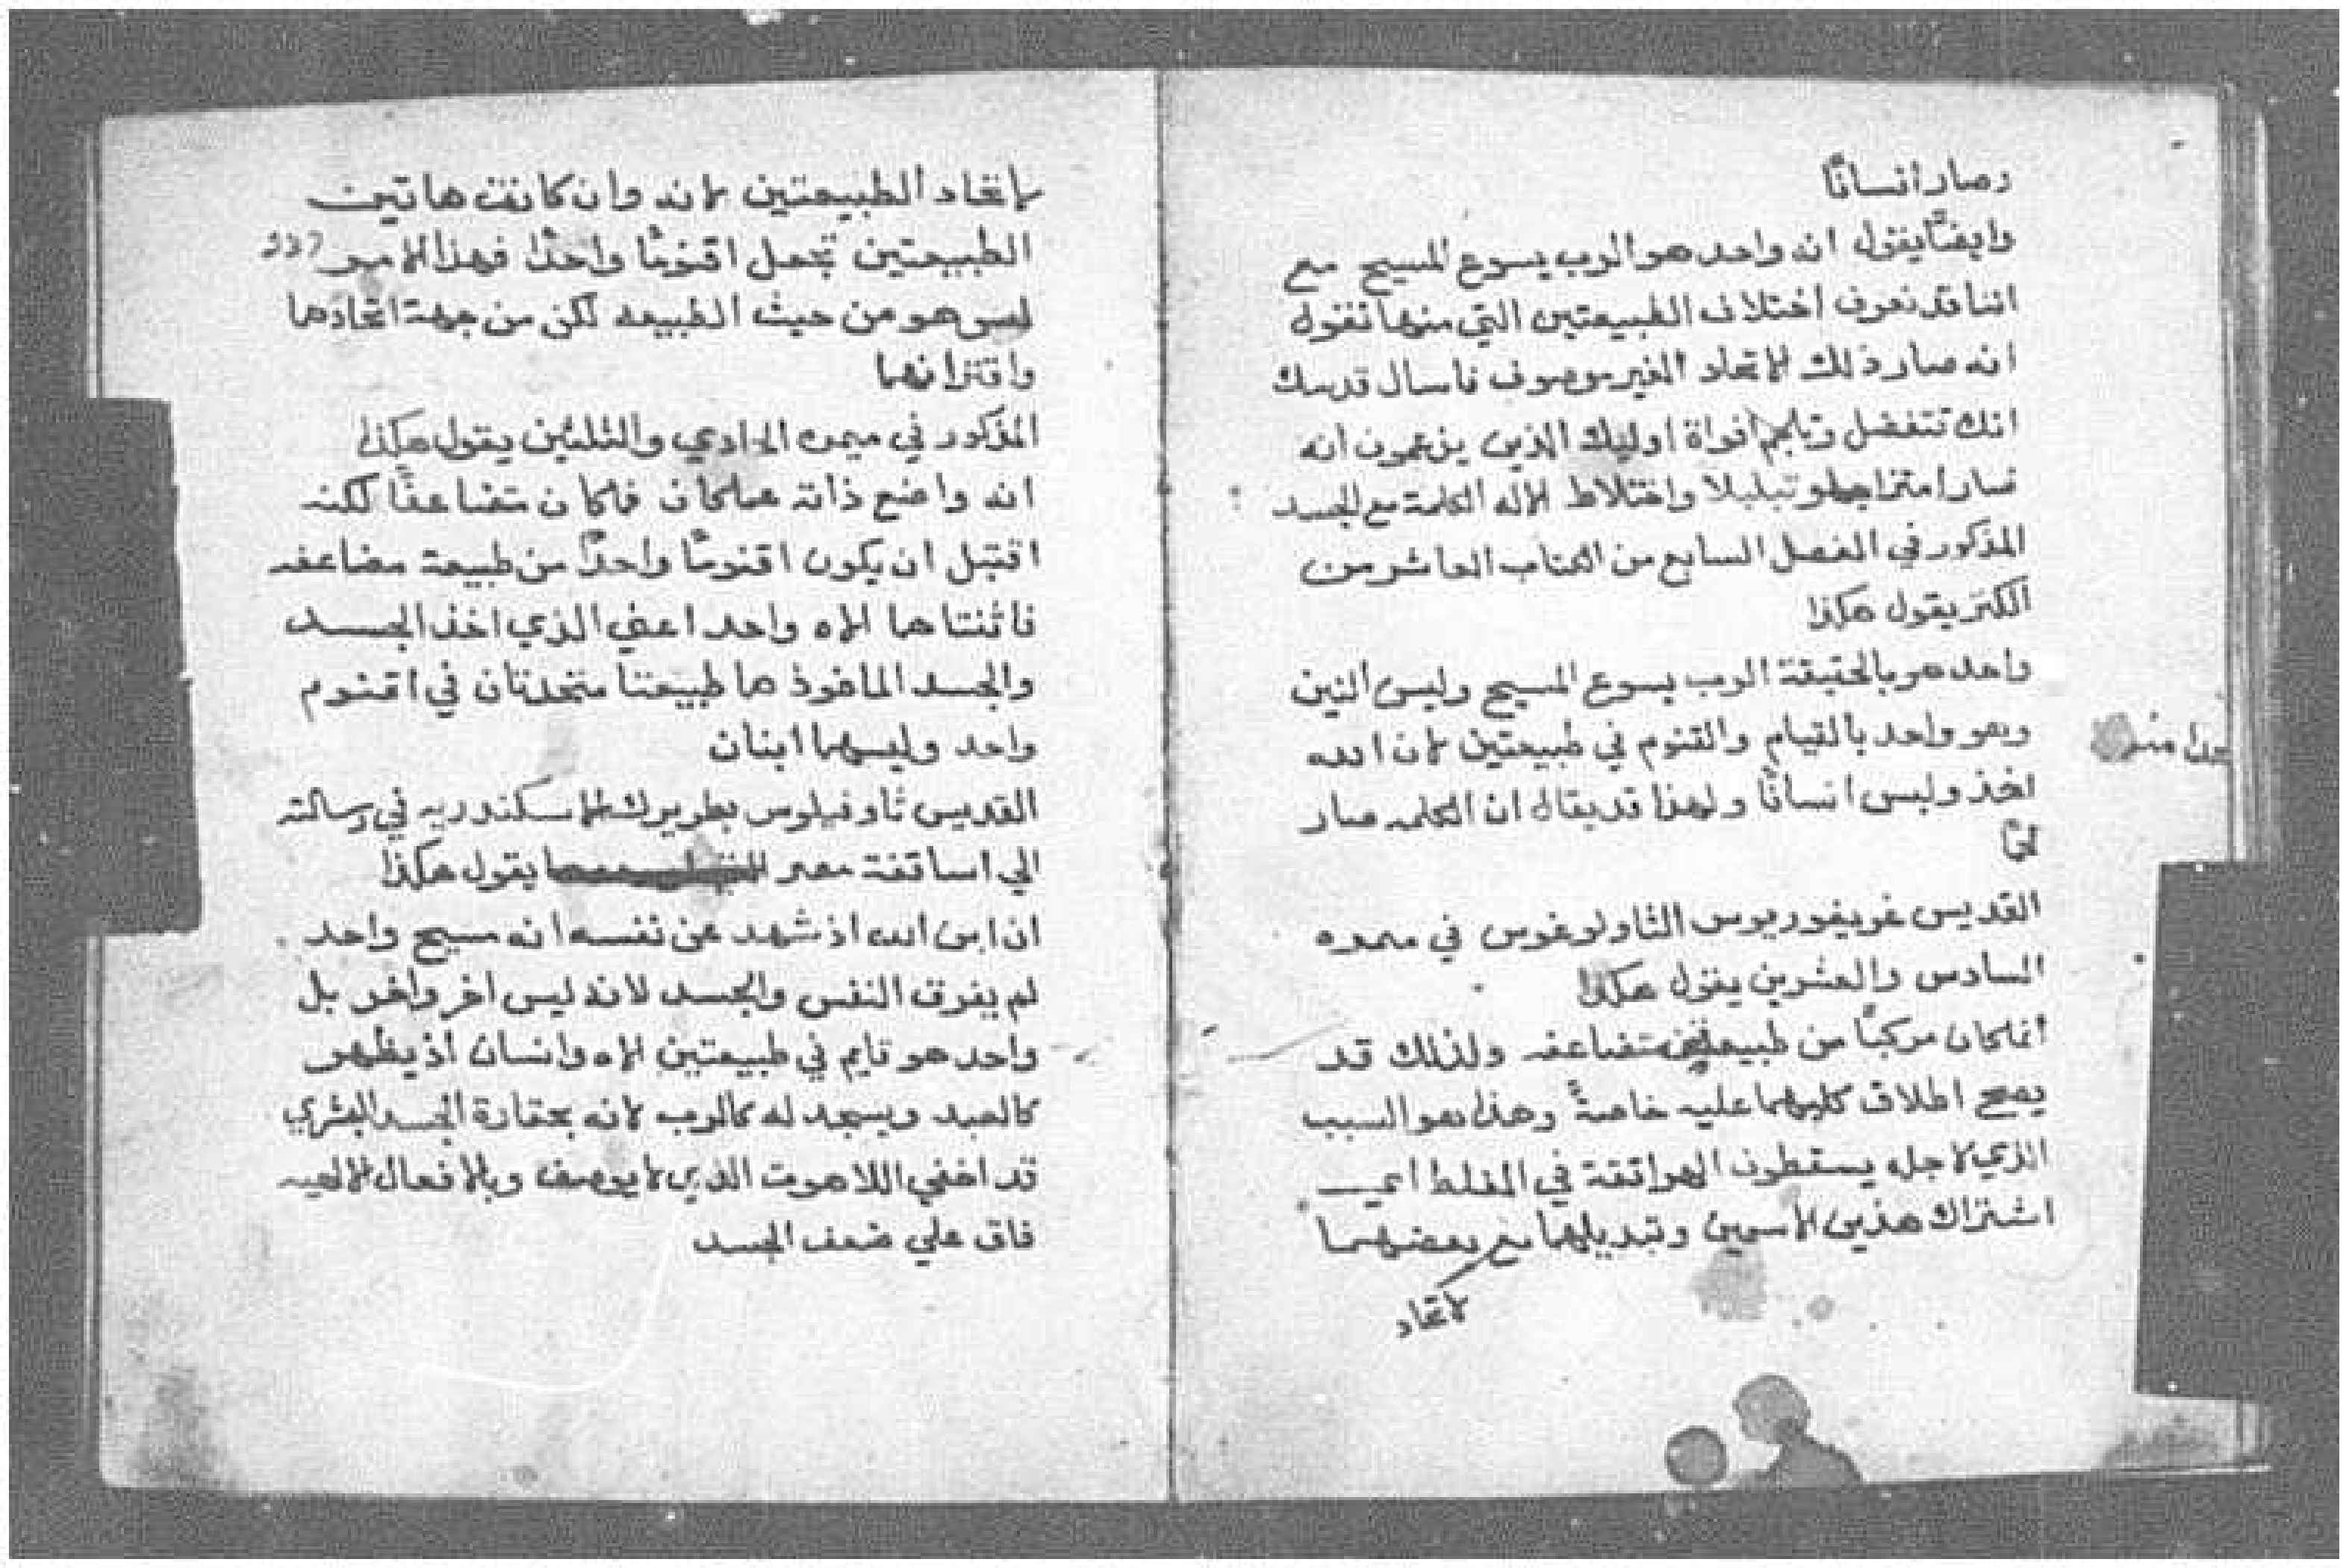 وصار انسانًا
وايضًا يقول انه واحد هو الرب يسوع المسيح مع
اننا قد نعرف اختلاف الطبيعتين التي منها نقول
انه صار ذلك الاتحاد الغير موصوف فاسال قدسك
انك تتفضل وتلجم افواة اوليك الذين يزعمون انه
صار امتزاج وتبلبلا واختلاط الاله الكلمة مع الجسد
المذكور في الفصل السابع من الكتاب العاشر من
الكنز يقول هكذا
واحد هو بالحقيقة الرب يسوع المسيح وليس اثنين
وهو واحد بالقيام والقنوم في طبيعتين لان الله
اخذ ولبس انسانًا ولهذا قد يقال ان الكلمه صار
لحمًا
القديس غريغوريوس الثاولوغوس في ميمره
السادس والعشرين يقول هكذا
انما كان مركبًا من طبيعة متضاعفه ولذلك قد
يصح اطلاق كليهما عليه خاصةً وهذا هو السبب
الذي لاجله يسقطون الهراتقة في الغلط اعني
اشتراك هذين الاسمين وتبديلهما مع بعضهما
لاتحاد
لاتحاد الطبيعتين لانه وان كانت هاتين
الطبيعتين تجعل اقنومًا واحدًا فهذا الامر 337
ليس هو من حيث الطبيعه لكن من جهة اتحادهما
واقترانهما
المذكور في ميمره الحادي والثلثين يقول هكذا
انه واضع ذاته عما كان فما كان متضاعفًا لكنه
اقتبل ان يكون اقنومًا واحدًا من طبيعة مضاعفه
فاثنتاهما اله واحد اعني الذي اخذ الجسد
والجسد الماخوذ هما طبيعتا متحدتان في اقنوم
واحد وليسهما ابنان
القديس ثاوفيلوس بطريرك الاسكندريه في رسالته
الي اساقفة مصر يقول هكذا
ان ابن الله اذ شهد عن نفسه انه مسيح واحد
لم يفرق النفس والجسد لانه ليس اخر واخر بل
واحد هو قايم في طبيعتين اله وانسان اذ يظهر
كالعبد ويسجد له كالرب لانه بحقارة الجسد البشري
قد اخفي اللاهوت الذي لا يوصف وبالافعال الالهيه
فاق علي ضعف الجسد